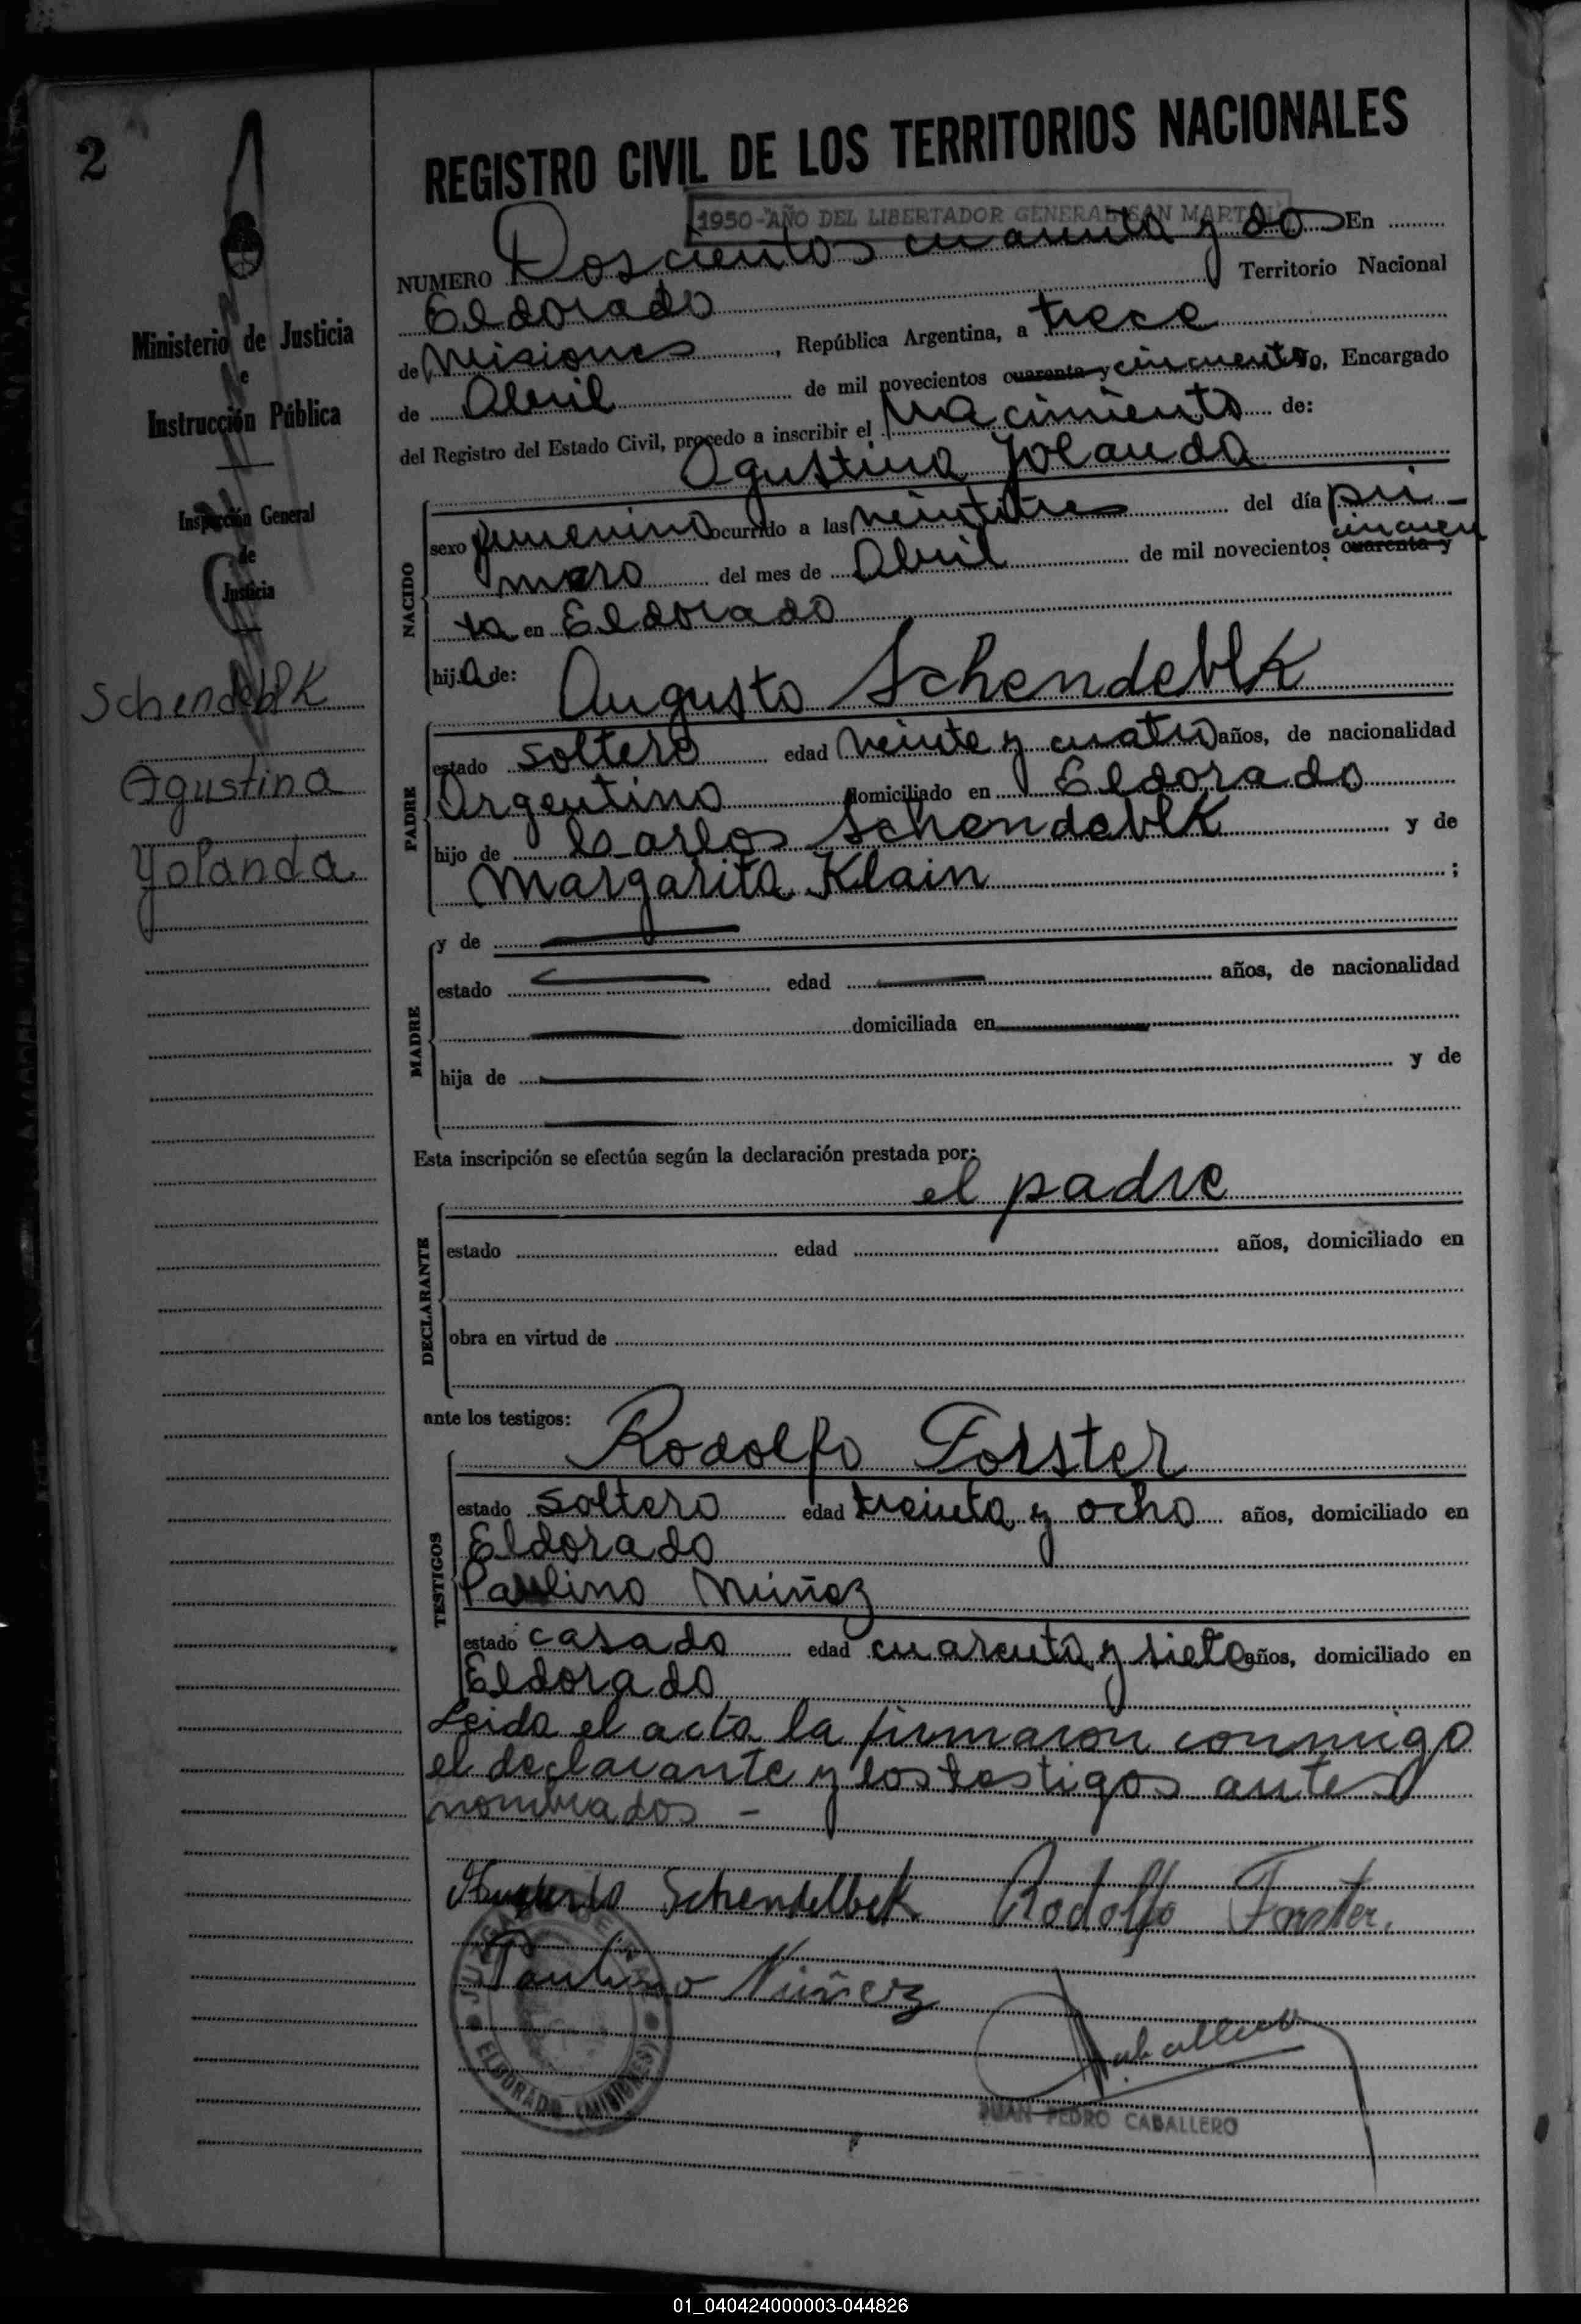 2
REGISTRO CIVIL DE LOS TERRITORIOS NACIONALES
1950-AÑO DEL LIBERTADOR GENERAL SAN MARTIN
NUMERO Doscientos cuarenta y dos En
Eldorado Territorio Nacional
de Misiones, República Argentina, a trece
de Abril de mil novecientos cuarenta y cincuenta yo, Encargado
del Registro del Estado Civil, procedo a inscribir el Nacimiento de:
Agustina Yolanda
NACIDO
sexo femenino ocurrido a las veintitres del día pri-
mero del mes de Abril de mil novecientos cuarenta y cincuen
ta en Eldorado
hija de: Augusto Schendeblk
PADRE
estado soltero edad veinte y cuatro años, de nacionalidad
Argentino domiciliado en Eldorado
hijo de Carlos Schendeblk y de
Margarita Klain ;
MADRE
y de
estado edad años, de nacionalidad
domiciliada en
hija de y de
Esta inscripción se efectúa según la declaración prestada por:
el padre
DECLARANTE
estado edad años, domiciliado en
obra en virtud de
ante los testigos:
Rodolfo Forster
TESTIGOS
estado soltero edad treinta y ocho años, domiciliado en
Eldorado
Paulino Núñez
estado casado edad cuarenta y siete años, domiciliado en
Eldorado
Leida el acta la firmaron conmigo
el declarante y los testigos antes
nombrados -
Augusto Schendelbek Rodolfo Forster.
Paulino Núñez
Caballero
JUAN PEDRO CABALLERO
ELDORADO (MISIONES)
Ministerio de Justicia
e
Instrucción Pública
Inspección General
de
Justicia
Schendeblk
Agustina
Yolanda
01_040424000003-044826